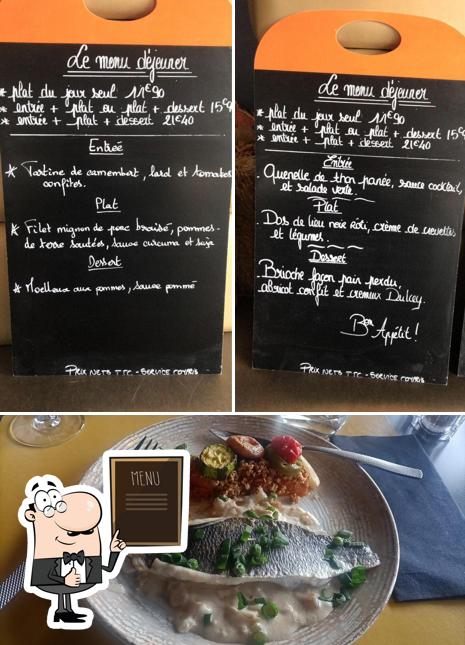 Le menu déjeuner
* plat du jour seul 11€90
* entrée + plat ou plat + dessert 15€
* entrée + plat + dessert 21€40
Entrée
* Tartine de camembert, lard et tomates
confites.
Plat
* Filet mignon de porc braisé, pommes-
de terre sautées, sauce curcuma et soja
Dessert
* Moelleux aux pommes, sauce pommé
PRIX NETS T.T.C - SERVICE COMPRIS
Le menu déjeuner
* plat du jour seul 11€90
* entrée + plat ou plat + dessert 15€
* entrée + plat + dessert 21€40
Entrée
Quenelle de thon panée, sauce cocktail,
et salade verte.
Plat
Dos de lieu noir rôti, crème de crevettes
et légumes.
Dessert
Brioche façon pain perdu,
abricot confit et crémeux Dulcey.
Bon Appétit !
PRIX NETS TTC - SERVICE COMPRIS
MENU